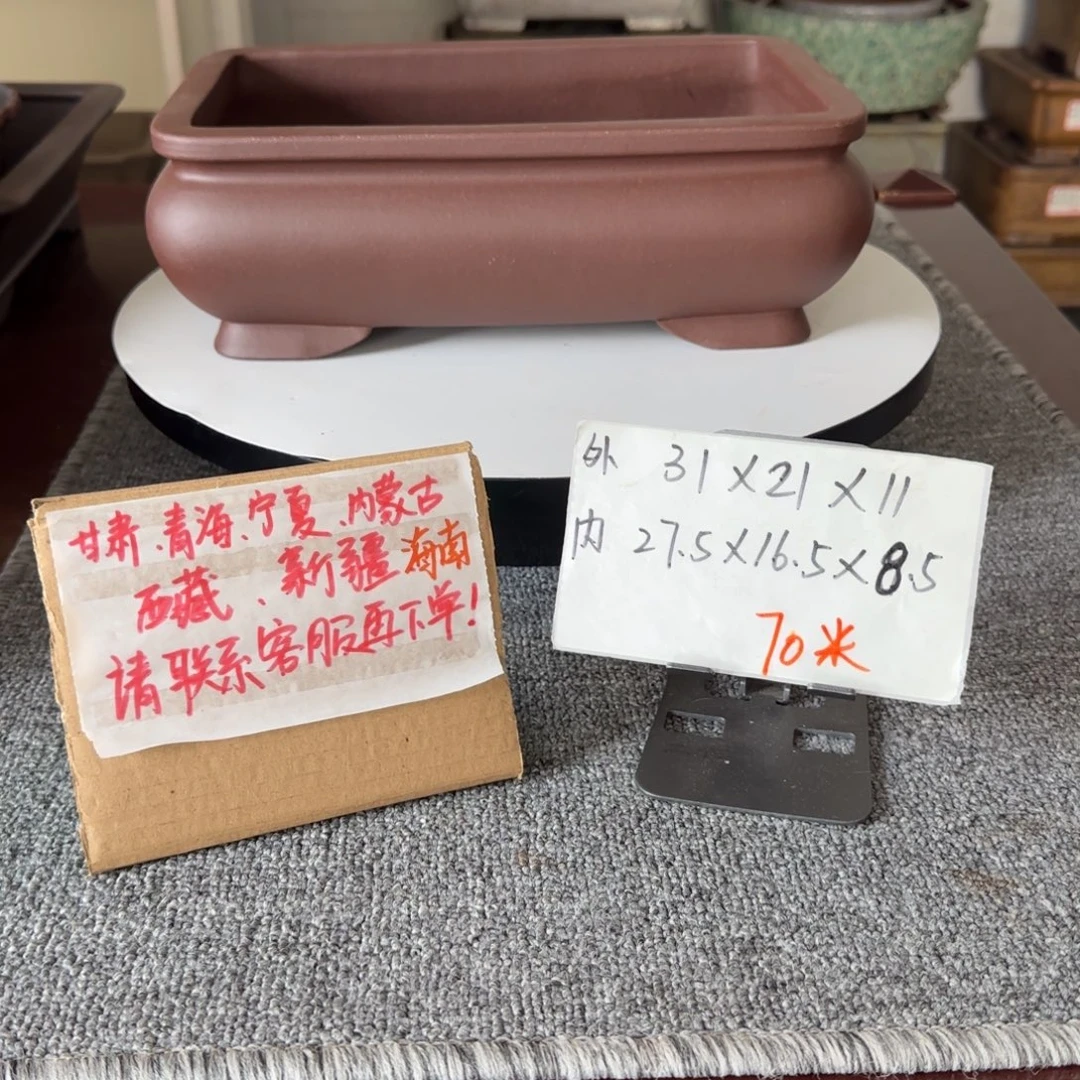 甘肃、青海、宁夏、内蒙古
西藏、新疆 海南
请联系客服再下单!
外 31×21×11
内 27.5×16.5×8.5
70米